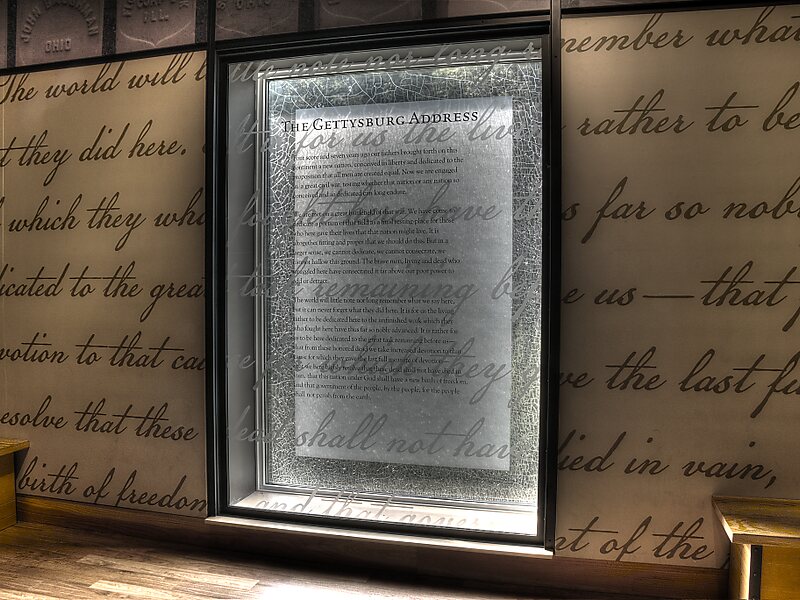 JOHN BAUGHMAN
OHIO
ILL
The world will little note nor long remember what
t they did here. It is for us the living rather to be
which they who have thus far so nobl
icated to the great task remaining before us — that
votion to that cause they gave the last fu
esolve that these dead shall not have died in vain,
birth of freedom and that government of the
THE GETTYSBURG ADDRESS
Four score and seven years ago our fathers brought forth on this
continent a new nation, conceived in liberty and dedicated to the
proposition that all men are created equal. Now we are engaged
in a great civil war, testing whether that nation or any nation so
conceived and so dedicated can long endure.
We are met on a great battlefield of that war. We have come to
dedicate a portion of that field as a final resting-place for those
who here gave their lives that that nation might live. It is
altogether fitting and proper that we should do this. But in a
larger sense, we cannot dedicate, we cannot consecrate, we
cannot hallow this ground. The brave men, living and dead who
struggled here have consecrated it far above our poor power to
add or detract.
The world will little note nor long remember what we say here,
but it can never forget what they did here. It is for us the living
rather to be dedicated here to the unfinished work which they
who fought here have thus far so nobly advanced. It is rather for
us to be here dedicated to the great task remaining before us—
that from these honored dead we take increased devotion to that
cause for which they gave the last full measure of devotion—
that we here highly resolve that these dead shall not have died in
vain, that this nation under God shall have a new birth of freedom,
and that government of the people, by the people, for the people
shall not perish from the earth.